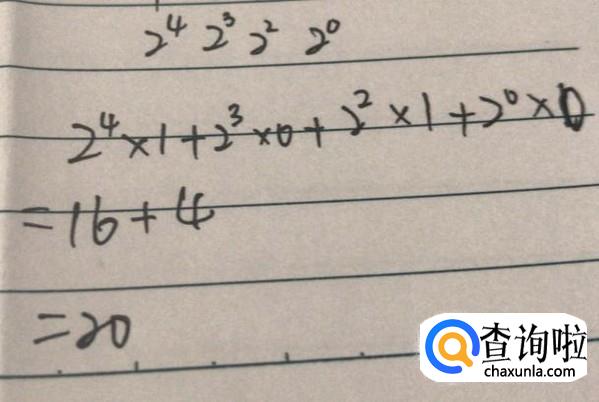 2⁴ 2³ 2² 2⁰
2⁴×1+2³×0+2²×1+2⁰×0
=16+4
=20
查询啦
chaxunla.com